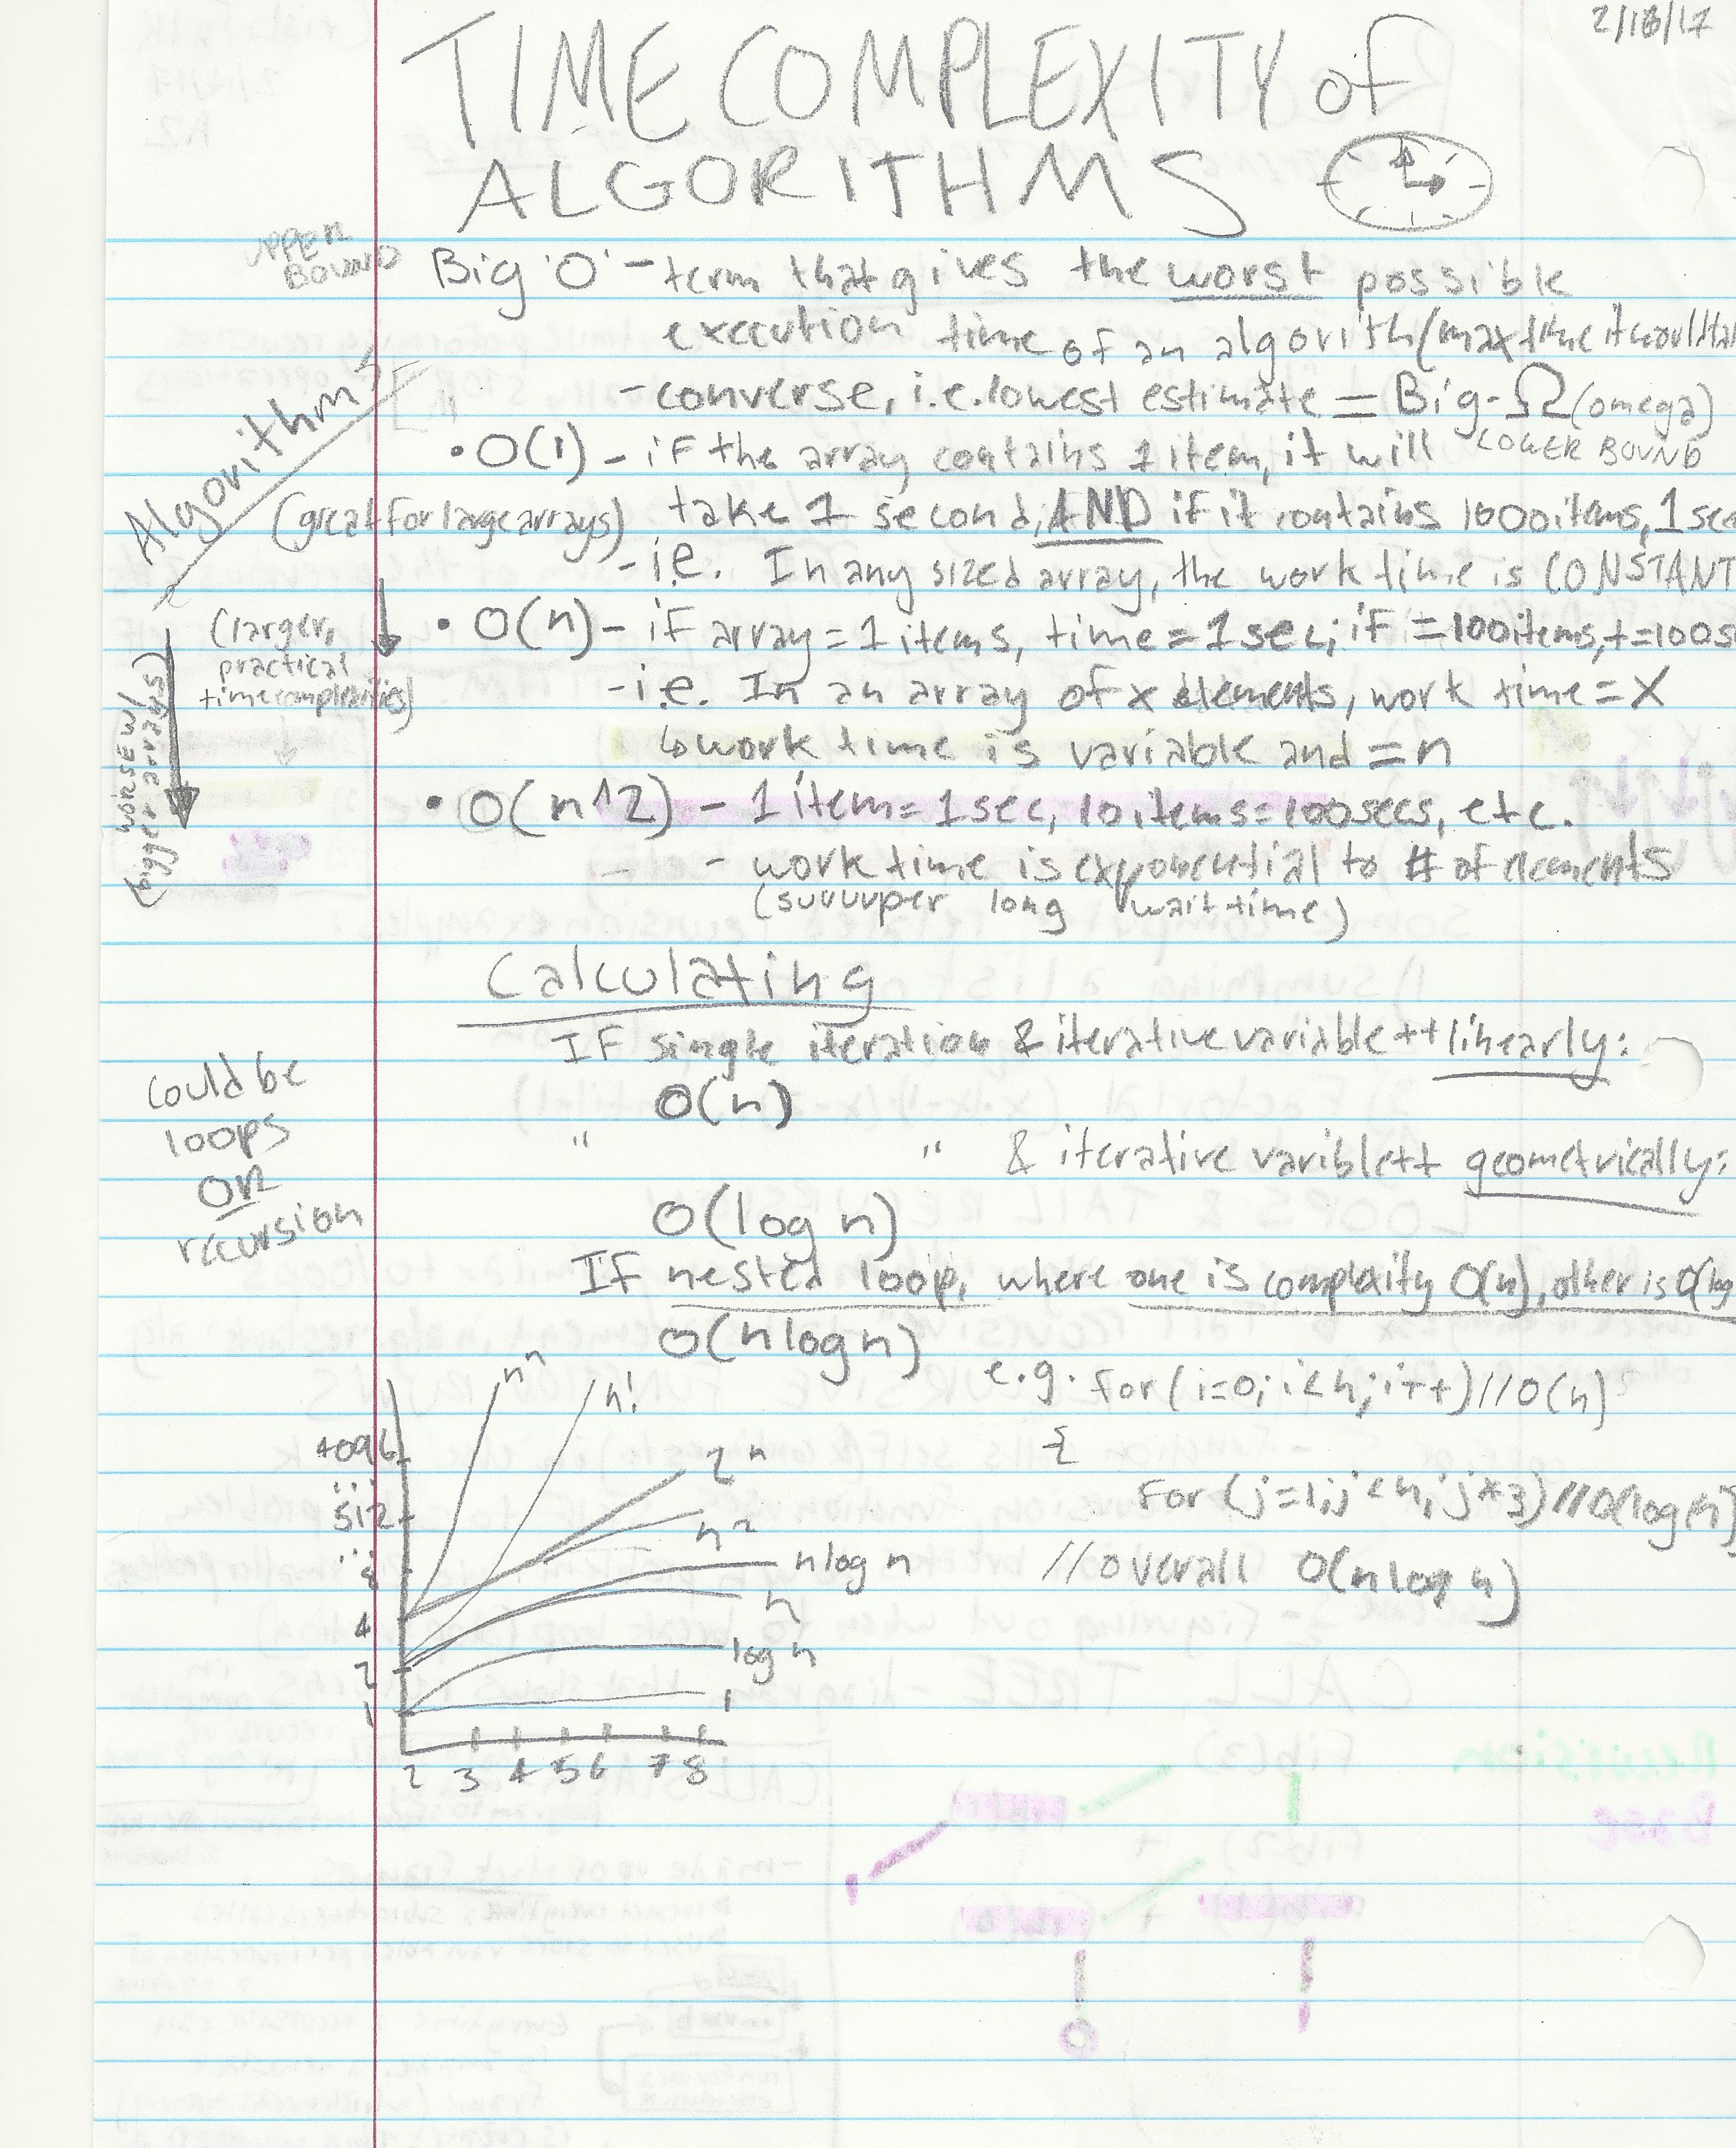 2/18/17
TIME COMPLEXITY of
ALGORITHMS
UPPER
BOUND
Big 'O' - term that gives the worst possible
execution time of an algorith (max time it would ta
- converse, i.e. lowest estimate = Big-Ω (omega)
LOWER BOUND
Algorithms
• O(1) - if the array contains 1 item, it will
(great for large arrays)
take 1 second, AND if it contains 1000 items, 1 sec
- i.e. In any sized array, the work time is CONSTANT
(larger,
practical
time complexities)
• O(n) - if array = 1 items, time = 1 sec; if = 100 items, t = 100 s
- i.e. In an array of x elements, work time = X
↳ work time is variable and = n
(WORSE W/
bigger arrays)
• O(n^2) - 1 item = 1 sec, 10 items = 100 secs, etc.
- work time is exponential to # of elements
(suuuuper long wait time)
Calculating
IF single iteration & iterative variable ++ linearly:
O(n)
" " & iterative varible ++ geometrically:
O(log n)
could be
loops
OR
recursion
IF nested loop, where one is complexity O(n), other is O(log
O(n log n)
e.g. for (i=0; i<n; i++) //O(n)
{
for (j=1; j<n; j*3) //O(log n)
//overall O(n log n)
n^n
n!
2^n
n^2
n log n
n
log n
1
4096
...
512
...
8
4
2
1
2 3 4 5 6 7 8